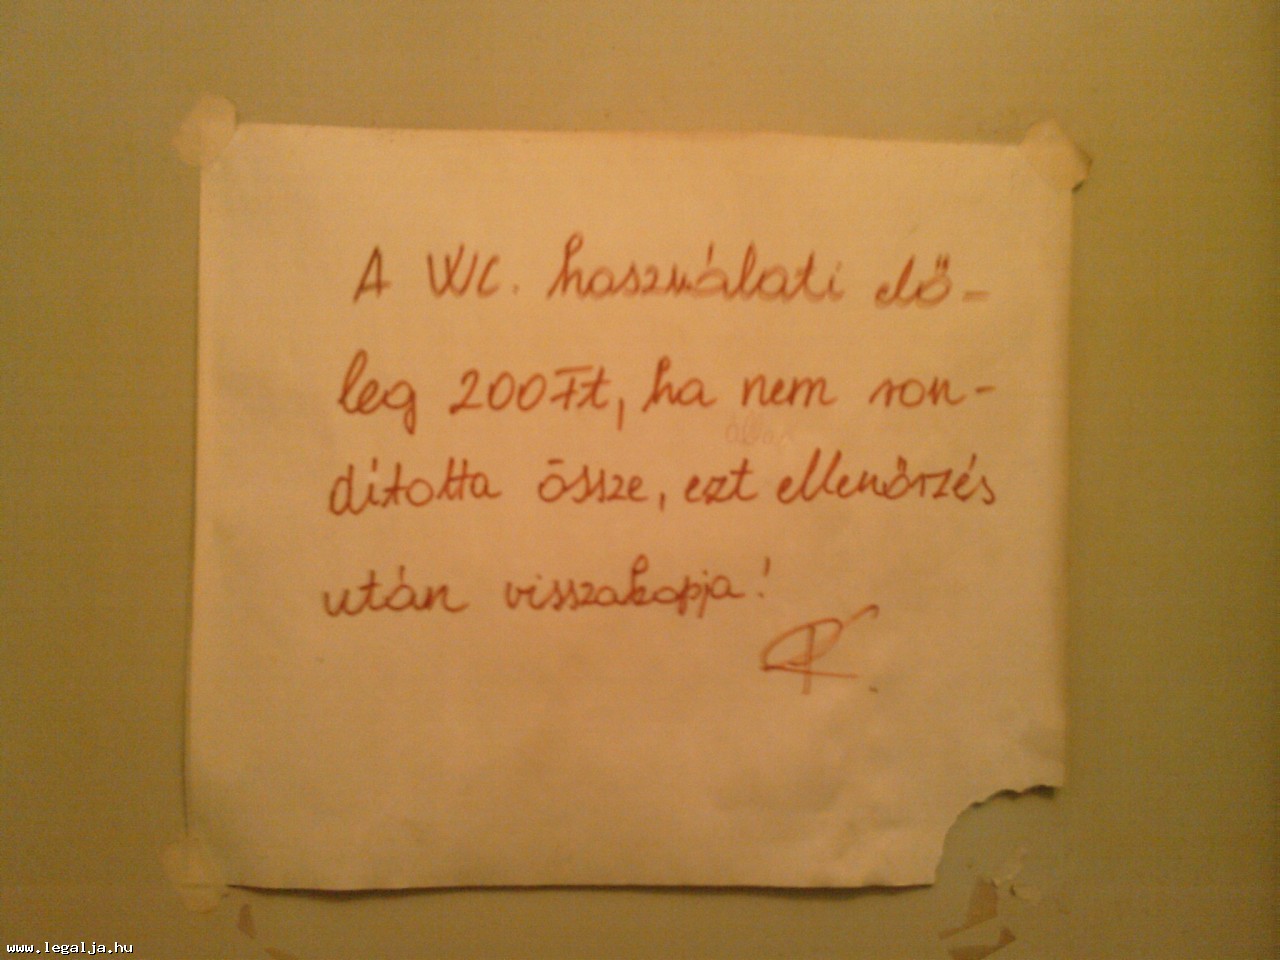 A WC. használati elő-
leg 200Ft, ha nem ron-
dította össze, ezt ellenőrzés
után visszakapja!
www.legalja.hu